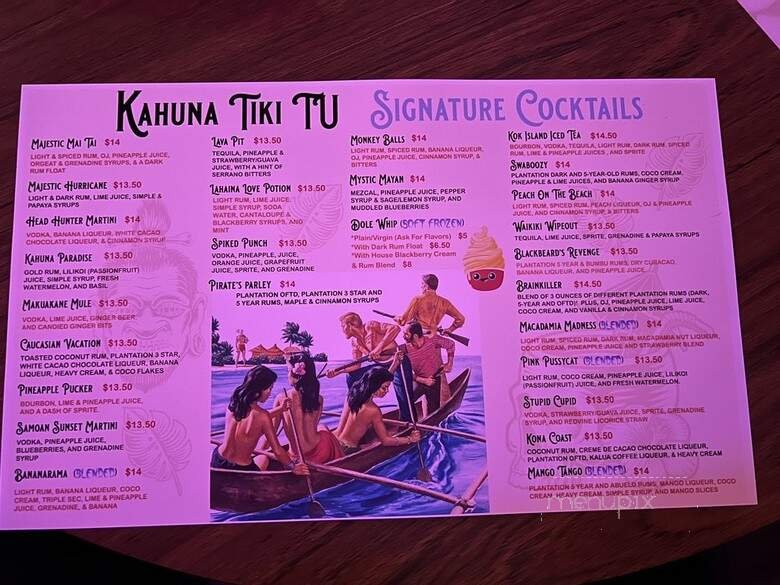 KAHUNA TIKI TU SIGNATURE COCKTAILS
MAJESTIC MAI TAI $14
LIGHT & SPICED RUM, OJ, PINEAPPLE JUICE,
ORGEAT & GRENADINE SYRUPS, & A DARK
RUM FLOAT
MAJESTIC HURRICANE $13.50
LIGHT & DARK RUM, LIME JUICE, SIMPLE &
PAPAYA SYRUPS
HEAD HUNTER MARTINI $14
VODKA, BANANA LIQUEUR, WHITE CACAO
CHOCOLATE LIQUEUR, & CINNAMON SYRUP
KAHUNA PARADISE $13.50
GOLD RUM, LILIKOI (PASSIONFRUIT)
JUICE, SIMPLE SYRUP, FRESH
WATERMELON, AND BASIL
MAKUAKANE MULE $13.50
VODKA, LIME JUICE, GINGER BEER
AND CANDIED GINGER BITS
CAUCASIAN VACATION $13.50
TOASTED COCONUT RUM, PLANTATION 3 STAR,
WHITE CACAO CHOCOLATE LIQUEUR, BANANA
LIQUEUR, HEAVY CREAM, & COCO FLAKES
PINEAPPLE PUCKER $13.50
BOURBON, LIME & PINEAPPLE JUICE,
AND A DASH OF SPRITE.
SAMOAN SUNSET MARTINI $13.50
VODKA, PINEAPPLE JUICE,
BLUEBERRIES, AND GRENADINE
SYRUP
BANANARAMA (BLENDED) $14
LIGHT RUM, BANANA LIQUEUR, COCO
CREAM, TRIPLE SEC, LIME & PINEAPPLE
JUICE, GRENADINE, & BANANA
LAVA PIT $13.50
TEQUILA, PINEAPPLE &
STRAWBERRY/GUAVA
JUICE, WITH A HINT OF
SERRANO BITTERS
LAHAINA LOVE POTION $13.50
LIGHT RUM, LIME JUICE,
SIMPLE SYRUP, SODA
WATER, CANTALOUPE &
BLACKBERRY SYRUPS, AND
MINT
SPIKED PUNCH $13.50
VODKA, PINEAPPLE JUICE,
ORANGE JUICE, GRAPEFRUIT
JUICE, SPRITE, AND GRENADINE
PIRATE'S PARLEY $14
PLANTATION OFTD, PLANTATION 3 STAR AND
5 YEAR RUMS, MAPLE & CINNAMON SYRUPS
MONKEY BALLS $14
LIGHT RUM, SPICED RUM, BANANA LIQUEUR,
OJ, PINEAPPLE JUICE, CINNAMON SYRUP, &
BITTERS
MYSTIC MAYAN $14
MEZCAL, PINEAPPLE JUICE, PEPPER
SYRUP & SAGE/LEMON SYRUP, AND
MUDDLED BLUEBERRIES
DOLE WHIP (SOFT FROZEN)
*Plain/Virgin (Ask For Flavors) $5
*With Dark Rum Float $6.50
*With House Blackberry Cream
& Rum Blend $8
KOK ISLAND ICED TEA $14.50
BOURBON, VODKA, TEQUILA, LIGHT RUM, DARK RUM, SPICED
RUM, LIME & PINEAPPLE JUICES , AND SPRITE
SWABOOZY $14
PLANTATION DARK AND 5-YEAR-OLD RUMS, COCO CREAM,
PINEAPPLE & LIME JUICES, AND BANANA GINGER SYRUP
PEACH ON THE BEACH $14
LIGHT RUM, SPICED RUM, PEACH LIQUEUR, OJ & PINEAPPLE
JUICE, AND CINNAMON SYRUP, & BITTERS
WAIKIKI WIPEOUT $13.50
TEQUILA, LIME JUICE, SPRITE, GRENADINE & PAPAYA SYRUPS
BLACKBEARD'S REVENGE $13.50
PLANTATION 5 YEAR & BUMBU RUMS, DRY CURACAO,
BANANA LIQUEUR, AND PINEAPPLE JUICE
BRAINKILLER $14.50
BLEND OF 3 OUNCES OF DIFFERENT PLANTATION RUMS (DARK,
5-YEAR AND OFTD)!. PLUS, OJ, PINEAPPLE JUICE, LIME JUICE,
COCO CREAM, AND VANILLA & CINNAMON SYRUPS
MACADAMIA MADNESS (BLENDED) $14
LIGHT RUM, SPICED RUM, DARK RUM, MACADAMIA NUT LIQUEUR,
COCO CREAM, PINEAPPLE JUICE AND STRAWBERRY BLEND
PINK PUSSYCAT (BLENDED) $13.50
LIGHT RUM, COCO CREAM, PINEAPPLE JUICE, LILIKOI
(PASSIONFRUIT) JUICE, AND FRESH WATERMELON.
STUPID CUPID $13.50
VODKA, STRAWBERRY/GUAVA JUICE, SPRITE, GRENADINE
SYRUP, AND REDVINE LICORICE STRAW
KONA COAST $13.50
COCONUT RUM, CREME DE CACAO CHOCOLATE LIQUEUR,
PLANTATION OFTD, KALUA COFFEE LIQUEUR, & HEAVY CREAM
MANGO TANGO (BLENDED) $14
PLANTATION 5 YEAR AND ABUELO RUMS, MANGO LIQUEUR, COCO
CREAM, HEAVY CREAM, SIMPLE SYRUP, AND MANGO SLICES
menupix